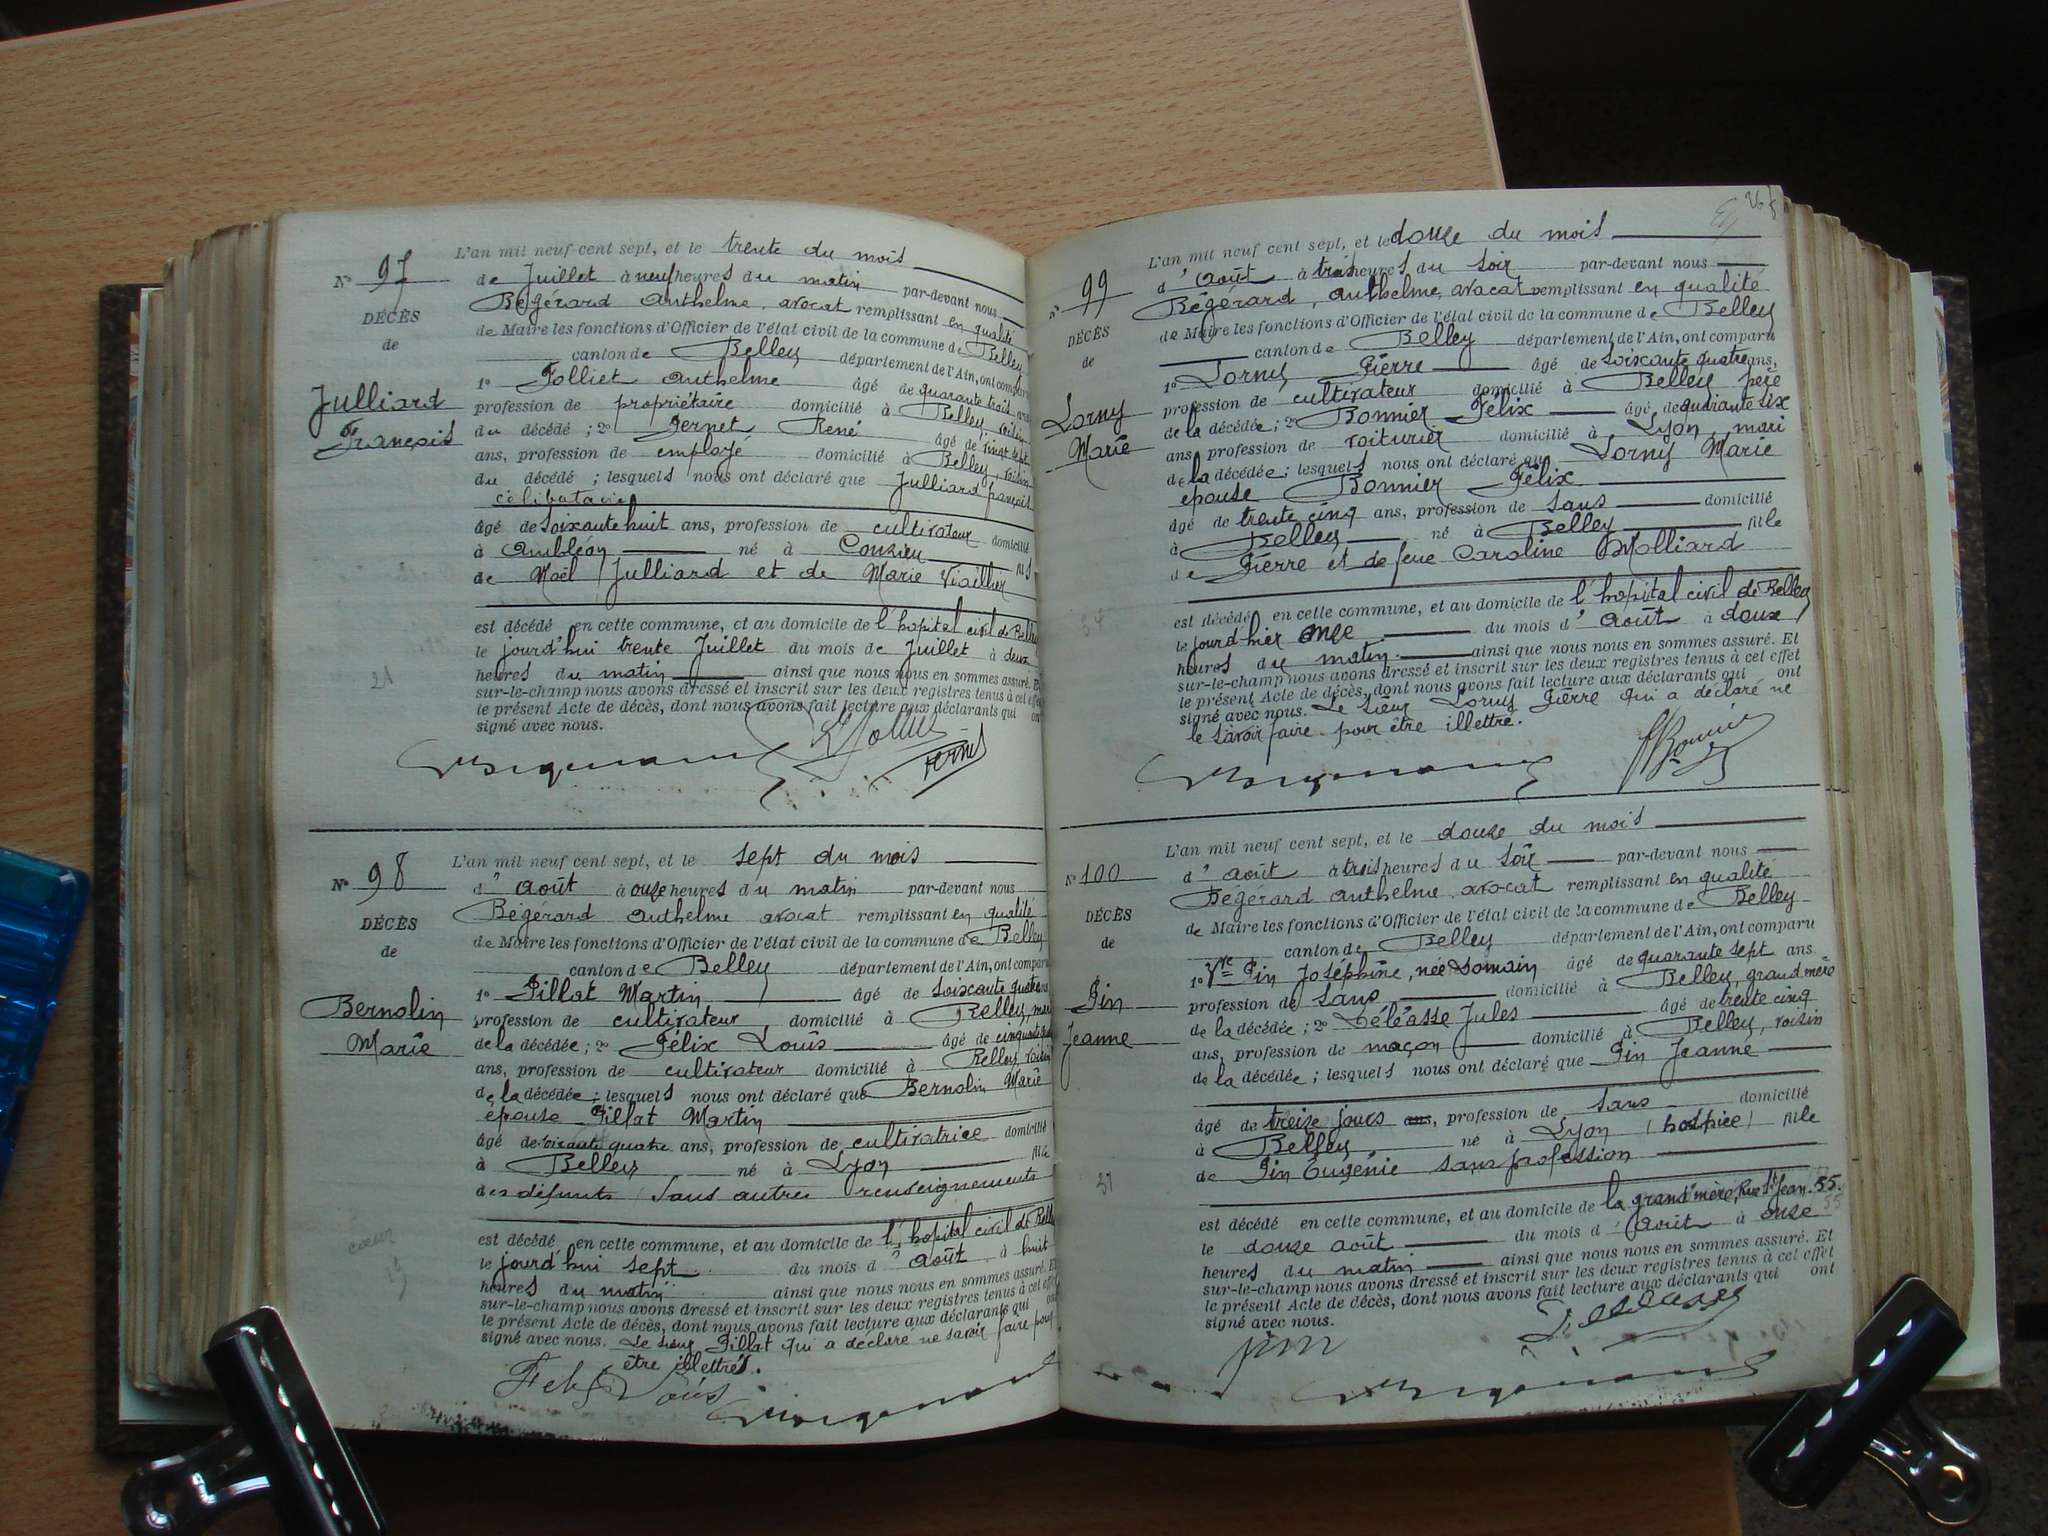 L'an mil neuf cent sept, et le trente du mois
N° 97
de Juillet à neuf heures du matin par-devant nous
Bégérard Anthelme, avocat remplissant en qualité
DÉCÈS
de Maire les fonctions d'Officier de l'état civil de la commune de Belley
de
canton de Belley département de l'Ain, ont comparu
1° Folliet Anthelme âgé de quarante trois ans
Julliard
profession de propriétaire domicilié à Belley, voisin
François
du décédé ; 2° Pernet René âgé de vingt sept
ans, profession de employé domicilié à Belley, voisin
du décédé ; lesquels nous ont déclaré que Julliard françois
célibataire
âgé de soixante huit ans, profession de cultivateur domicilié
à Ambléon né à Conzieu fils
de Noël Julliard et de Marie
est décédé en cette commune, et au domicile de l'hopital civil de Belley
le jourd'hui trente Juillet du mois de Juillet à deux
heures du matin ainsi que nous nous en sommes assuré. Et
21
sur-le-champ nous avons dressé et inscrit sur les deux registres tenus à cet effet
le présent Acte de décès, dont nous avons fait lecture aux déclarants qui ont
signé avec nous.
L'an mil neuf cent sept, et le sept du mois
N° 98
d' Août à onze heures du matin par-devant nous
Bégérard Anthelme avocat remplissant en qualité
DÉCÈS
de Maire les fonctions d'Officier de l'état civil de la commune de Belley
de
canton de Belley département de l'Ain, ont comparu
1° Pillat Martin âgé de soixante quatre ans
Bernolin
profession de cultivateur, domicilié à Belley, mari
Marie
de la décédée ; 2° Félix Louis âgé de cinquante
ans, profession de cultivateur domicilié à Belley voisin
de la décédée ; lesquels nous ont déclaré que Bernolin Marie
épouse Pillat Martin
âgé de soixante quatre ans, profession de cultivatrice domicilié
à Belley né à Lyon fille
des défunts (sans autres renseignements
est décédé en cette commune, et au domicile de l'hopital civil de Belley
coeur
le jourd'hui sept du mois d' Août à huit
heures du matin ainsi que nous nous en sommes assuré. Et
sur-le-champ nous avons dressé et inscrit sur les deux registres tenus à cet effet
le présent Acte de décès, dont nous avons fait lecture aux déclarants qui ont
signé avec nous. Le sieur Pillat qui a déclaré ne savoir faire pour
être illettrés.
Felix Louis
L'an mil neuf cent sept, et le douze du mois
N° 99
d' Août à trois heures du soir par-devant nous
Bégérard, Anthelme, avocat remplissant en qualité
DÉCÈS
de Maire les fonctions d'Officier de l'état civil de la commune de Belley
de
canton de Belley département de l'Ain, ont comparu
1° Lorny Pierre âgé de soixante quatre ans,
Lorny
profession de cultivateur domicilié à Belley père
Marie
de la décédée ; 2° Bonnier Félix âgé de quarante six
ans profession de voiturier domicilié à Lyon, mari
de la décédée ; lesquels nous ont déclaré que Lorny Marie
épouse Bonnier Félix
âgé de trente cinq ans, profession de sans domicilié
à Belley né à Belley fille
de Pierre et de feue Caroline Molliard
est décédé en cette commune, et au domicile de l'hopital civil de Belley
le jourd'hier onze du mois d' Août à douze
heures du matin. ainsi que nous nous en sommes assuré. Et
sur-le-champ nous avons dressé et inscrit sur les deux registres tenus à cet effet
le présent Acte de décès, dont nous avons fait lecture aux déclarants qui ont
signé avec nous. Le sieur Lorny Pierre qui a déclaré ne
le savoir faire pour être illettré.
L'an mil neuf cent sept, et le douze du mois
N° 100
d' Août à trois heures du soir par-devant nous
Bégérard Anthelme avocat remplissant en qualité
DÉCÈS
de Maire les fonctions d'Officier de l'état civil de la commune de Belley
de
canton de Belley département de l'Ain, ont comparu
1° Vve Pin Joséphine, née Domain âgé de quarante sept ans
Pin
profession de sans domicilié à Belley, grand mère
Jeanne
de la décédée ; 2° Déléasse Jules âgé de trente cinq
ans, profession de maçon domicilié à Belley, voisin
de la décédée ; lesquels nous ont déclaré que Pin Jeanne
âgé de treize jours ans, profession de sans domicilié
à Belley né à Lyon (hospice) fille
de Pin Eugénie sans profession
37
est décédé en cette commune, et au domicile de la grand'mère, Rue St Jean. 55.
le douze août du mois d' Août à onze
heures du matin ainsi que nous nous en sommes assuré. Et
sur-le-champ nous avons dressé et inscrit sur les deux registres tenus à cet effet
le présent Acte de décès, dont nous avons fait lecture aux déclarants qui ont
signé avec nous.